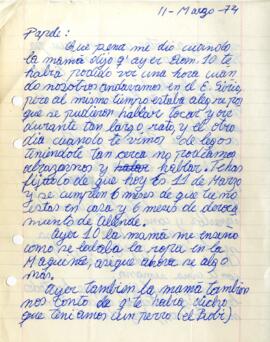 11-Marzo-74
Papde:
Que pena me dio cuando
la mamá dijo q' ayer Dom. 10 te
había podido ver una hora cuan
do nosotros andavamos en el E.
pero al mismo tiempo estaba alegre por
que se pudieron hablar tocar y oir
durante tan largo rato y el otro
día cuando te vimos de lejos
teniendote tan cerca no podiamos
abrazarnos y hablar. Te has
fijado de que hoy es 11 de Marzo
y se cumplen 6 meses de que no
estas en casa y 6 meses de derroca
miento de Allende.
Ayer 10 la mamá me enseño
como se lavaba la ropa en la
Maquina, asique ahora se algo
más.
Ayer tambien la mamá tambien
nos conto de q' te había dicho
que teniamos un perro (el